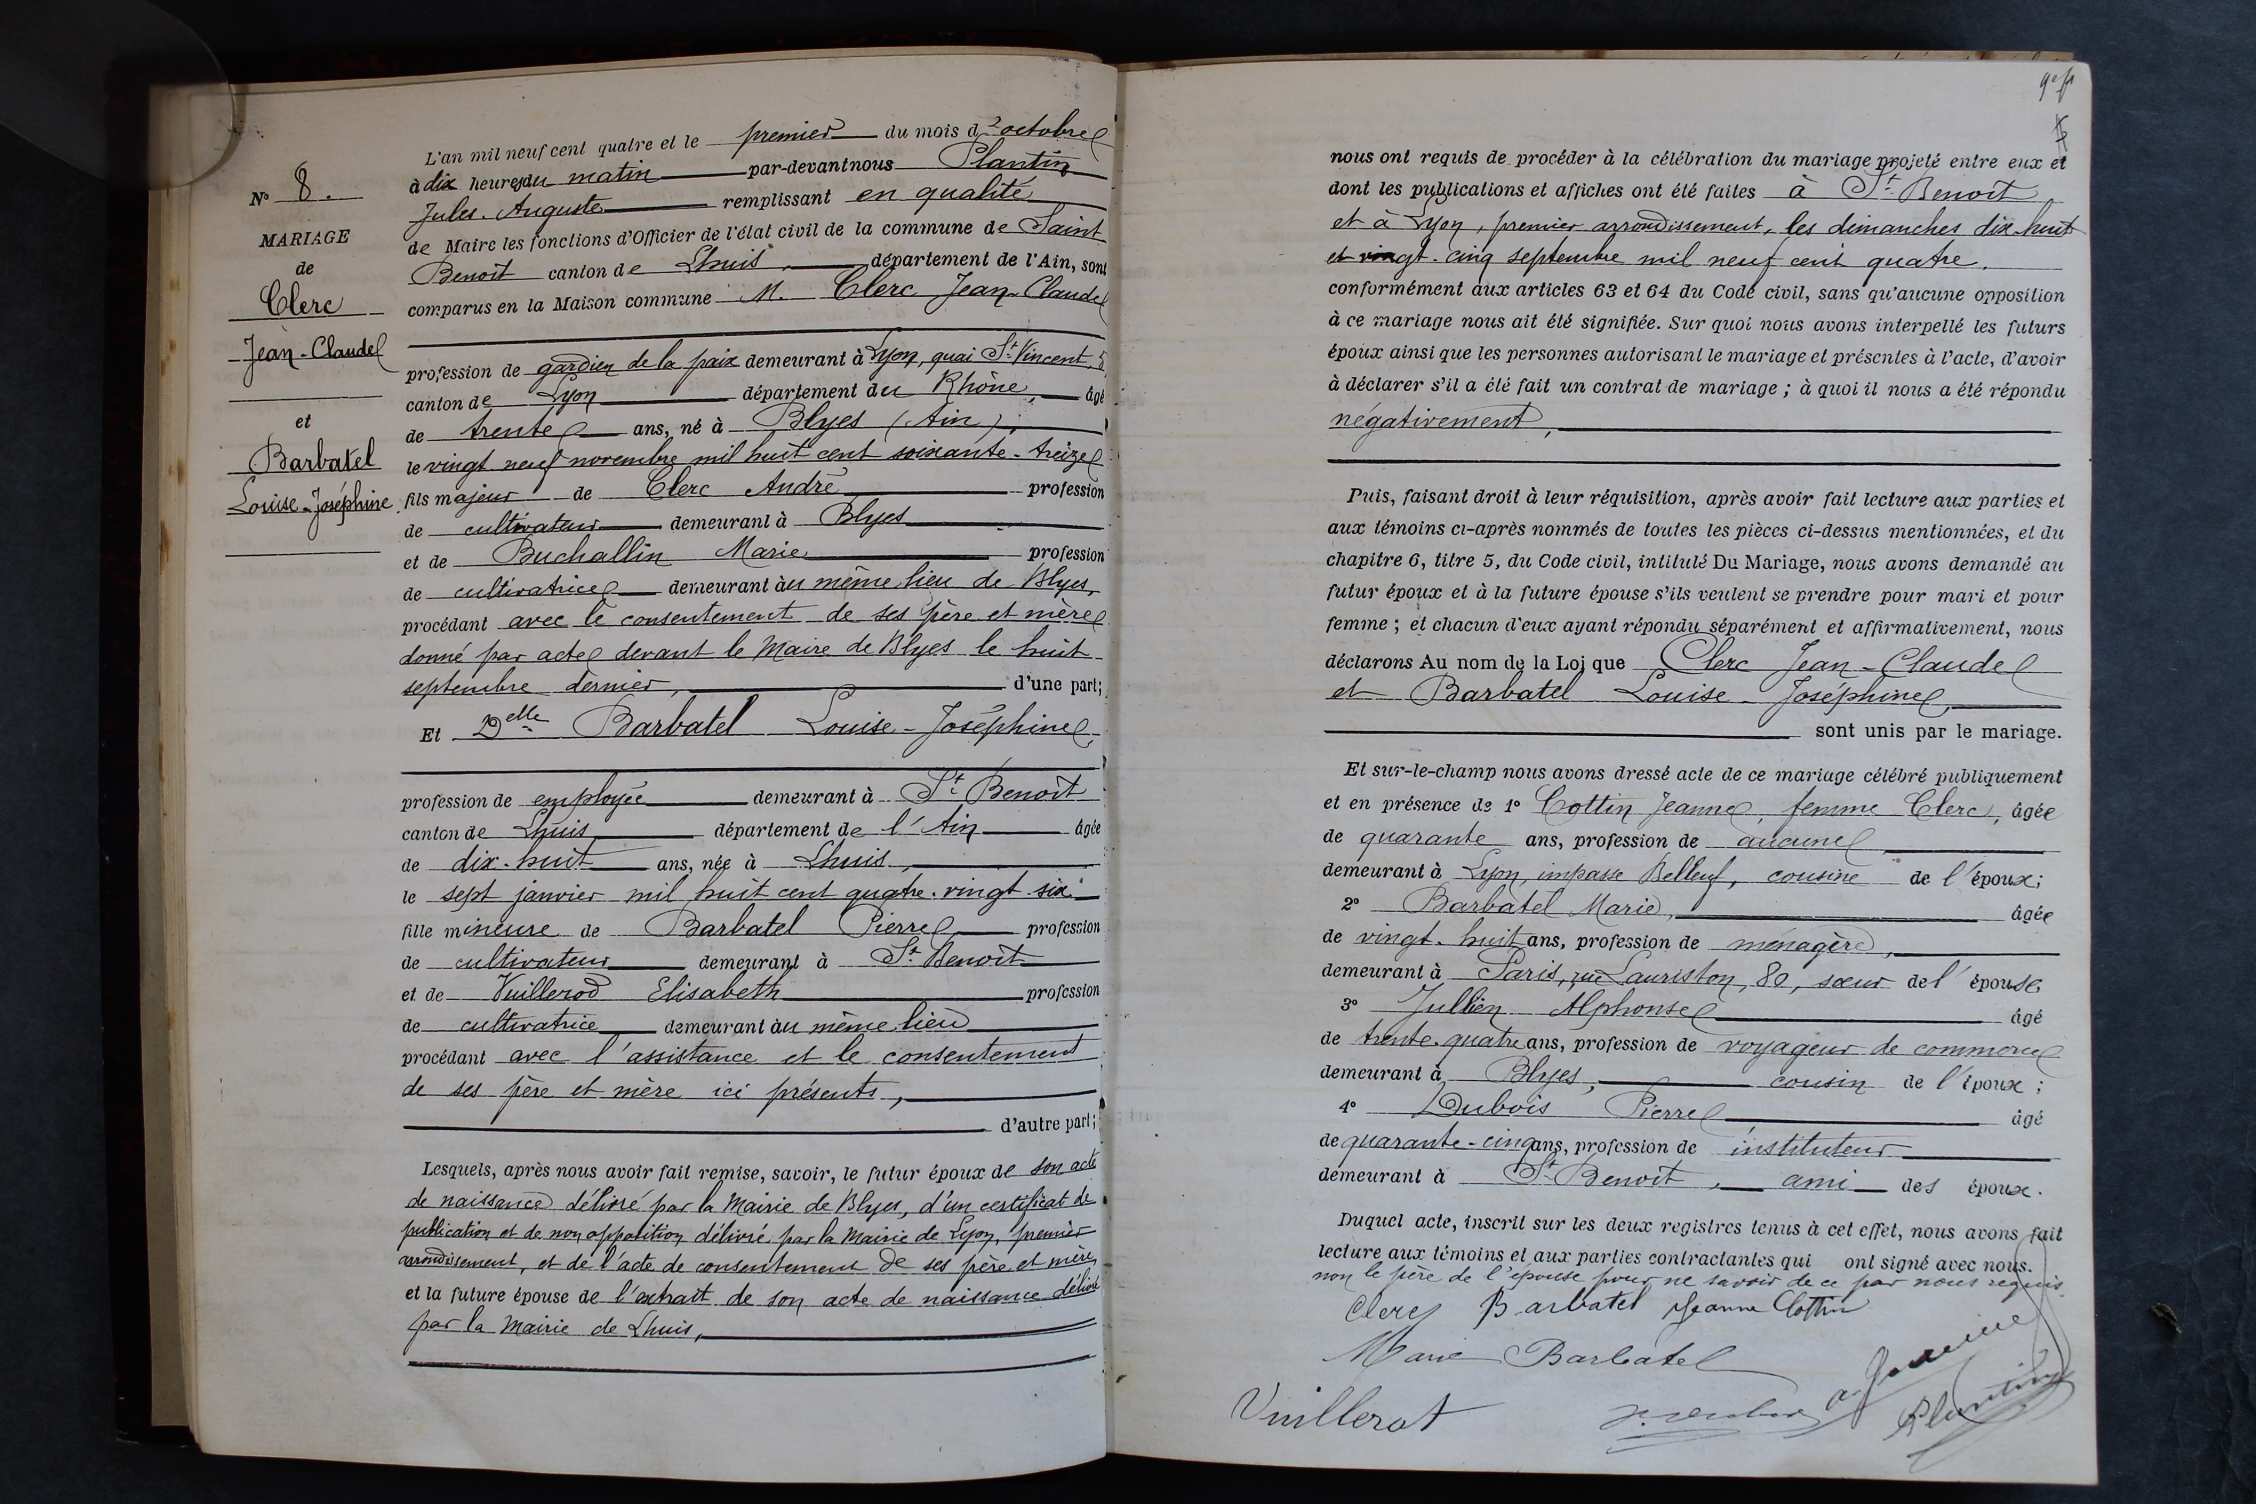 L'an mil neuf cent quatre et le premier du mois d'octobre
à dix heures du matin par-devant nous Plantin
Jules-Auguste remplissant en qualité
de Maire les fonctions d'Officier de l'état civil de la commune de Saint
Benoît canton de Lhuis, département de l'Ain, sont
comparus en la Maison commune M. Clerc Jean-Claude
N° 8.
MARIAGE
de
Clerc
Jean-Claude
et
Barbatel
Louise-Joséphine
profession de gardien de la paix demeurant à Lyon, quai St Vincent, 5
canton de Lyon département du Rhône, âgé
de trente ans, né à Blyes (Ain),
le vingt neuf novembre mil huit cent soixante-treize
fils majeur de Clerc André profession
de cultivateur demeurant à Blyes
et de Buchallin Marie profession
de cultivatrice demeurant au même lieu de Blyes,
procédant avec le consentement de ses père et mère
donné par acte devant le Maire de Blyes le huit
septembre dernier, d'une part;
Et Delle Barbatel Louise-Joséphine,
profession de employée demeurant à St Benoît
canton de Lhuis département de l'Ain âgée
de dix-huit ans, née à Lhuis,
le sept janvier mil huit cent quatre-vingt six
fille mineure de Barbatel Pierre profession
de cultivateur demeurant à St Benoît
et de Vuillerod Elisabeth profession
de cultivatrice demeurant au même lieu
procédant avec l'assistance et le consentement
de ses père et mère ici présents,
d'autre part;
Lesquels, après nous avoir fait remise, savoir, le futur époux de son acte
de naissance délivré par la Mairie de Blyes, d'un certificat de
publication et de non opposition délivré par la Mairie de Lyon, premier
arrondissement, et de l'acte de consentement de ses père et mère,
et la future épouse de l'extrait de son acte de naissance délivré
par la Mairie de Lhuis,
nous ont requis de procéder à la célébration du mariage projeté entre eux et
dont les publications et affiches ont été faites à St Benoît
et à Lyon, premier arrondissement, les dimanches dix-huit
et vingt-cinq septembre mil neuf cent quatre.
conformément aux articles 63 et 64 du Code civil, sans qu'aucune opposition
à ce mariage nous ait été signifiée. Sur quoi nous avons interpellé les futurs
époux ainsi que les personnes autorisant le mariage et présentes à l'acte, d'avoir
à déclarer s'il a été fait un contrat de mariage ; à quoi il nous a été répondu
négativement,
Puis, faisant droit à leur réquisition, après avoir fait lecture aux parties et
aux témoins ci-après nommés de toutes les pièces ci-dessus mentionnées, et du
chapitre 6, titre 5, du Code civil, intitulé Du Mariage, nous avons demandé au
futur époux et à la future épouse s'ils veulent se prendre pour mari et pour
femme ; et chacun d'eux ayant répondu séparément et affirmativement, nous
déclarons Au nom de la Loi que Clerc Jean-Claude
et Barbatel Louise-Joséphine
sont unis par le mariage.
Et sur-le-champ nous avons dressé acte de ce mariage célébré publiquement
et en présence de 1° Cottin Jeanne, femme Clerc, âgée
de quarante ans, profession de aucune
demeurant à Lyon, impasse, cousine de l'époux;
2° Barbatel Marie, âgée
de vingt-huit ans, profession de ménagère,
demeurant à Paris, rue Lauriston, 80, sœur de l'épouse
3° Jullien Alphonse âgé
de trente-quatre ans, profession de voyageur de commerce
demeurant à Blyes, cousin de l'époux;
4° Dubois Pierre âgé
de quarante-cinq ans, profession de instituteur
demeurant à St Benoît, ami des époux.
Duquel acte, inscrit sur les deux registres tenus à cet effet, nous avons fait
lecture aux témoins et aux parties contractantes qui ont signé avec nous.
non le père de l'épouse pour ne savoir de ce par nous requis.
Clerc Barbatel Jeanne Cottin
Marie Barbatel
Vuillerot Plantin